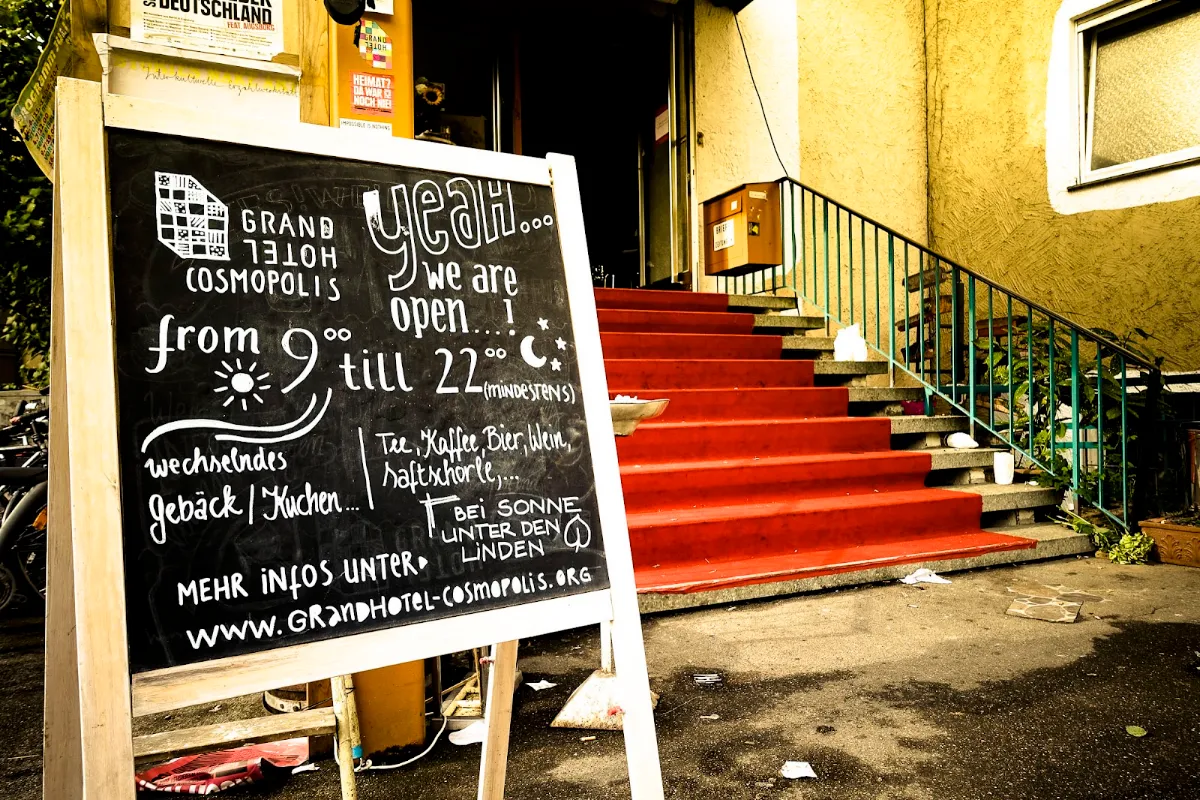 DEUTSCHLAND
FEAT. AUGSBURG
GRAND
HOTEL
HEIMAT?
DA WAR ICH
NOCH NIE!
IMPOSSIBLE IS NOTHING
GRAND
HOTEL
COSMOPOLIS
yeaH...
we are
open....!
from 9⁰⁰ till 22⁰⁰
(MiNDESTENS)
wechselndes
Gebäck / Kuchen...
Tee, Kaffee, Bier, Wein,
Saftschorle,...
BEI SONNE
UNTER DEN
LiNDEN
MEHR iNfOS UNTER
WWW.GRANDHOTEL-COSMOPOLIS.ORG